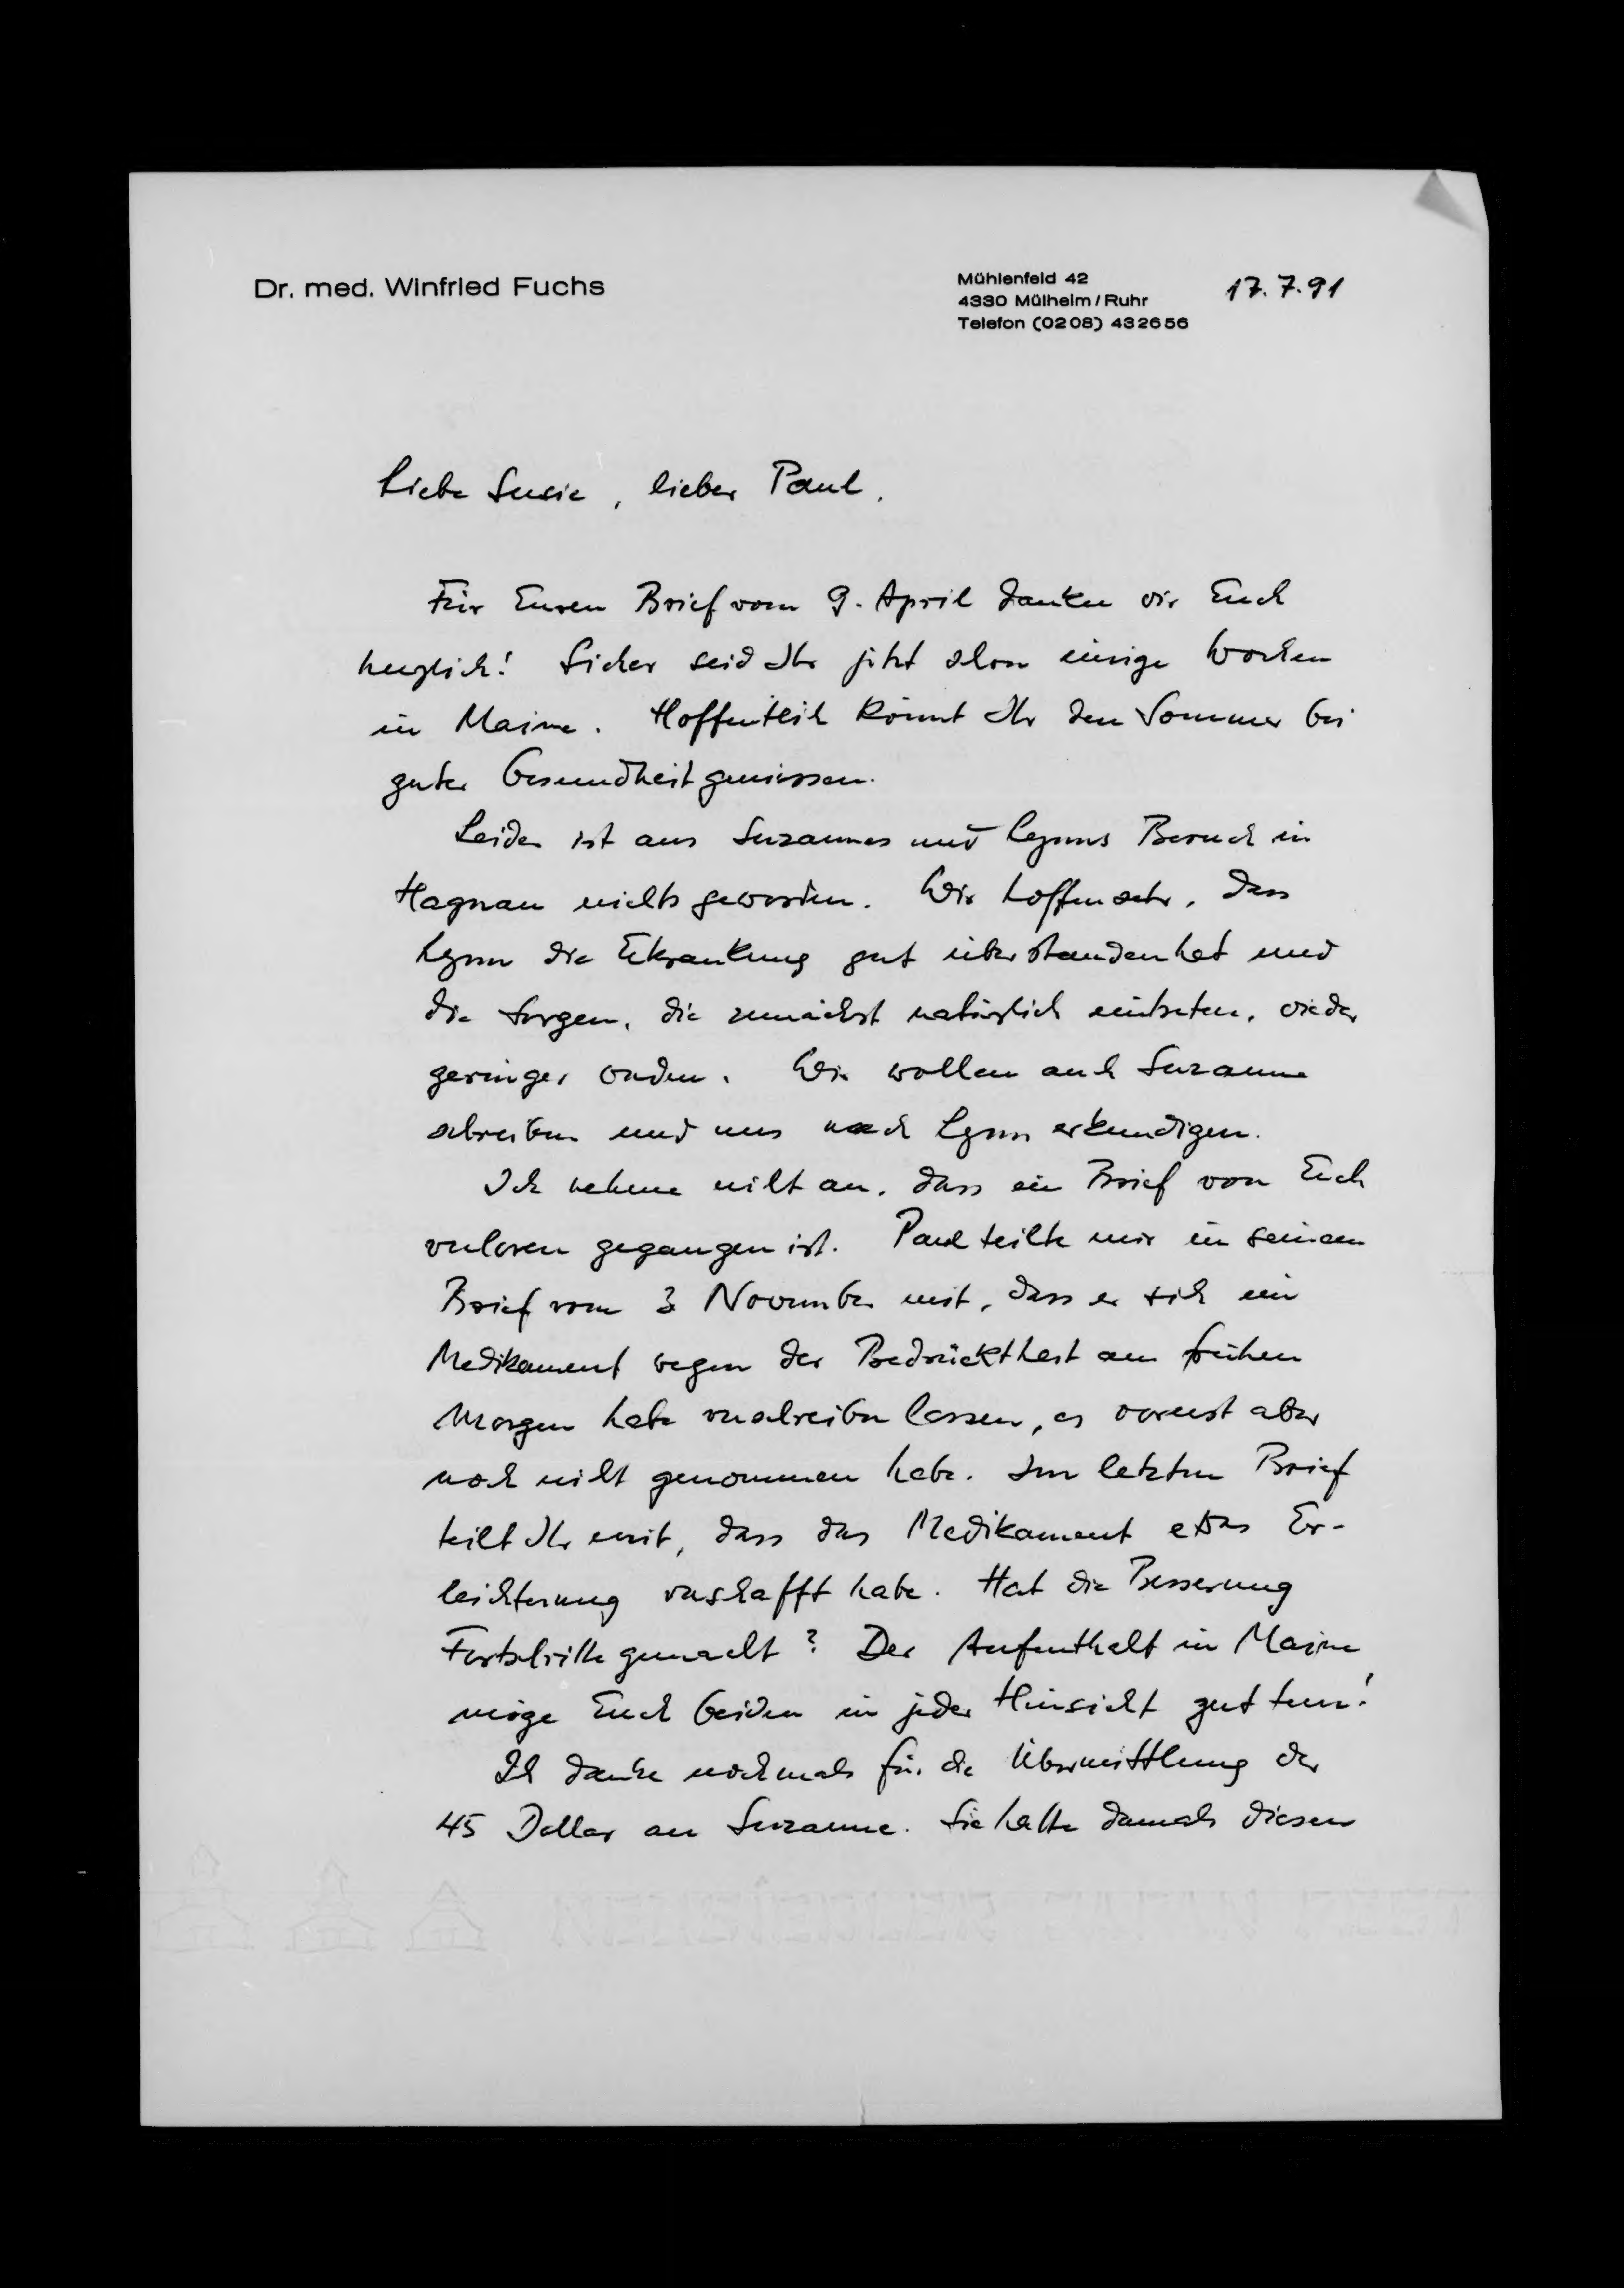 Dr. med. Winfried Fuchs
Mühlenfeld 42
4330 Mülheim/Ruhr
Telefon (0208) 432656
17.7.91
Liebe Susie, lieber Paul,
Für Euren Brief vom 9. April danken wir Euch
herzlich! Sicher seid Ihr jetzt schon einige Wochen
in Maine. Hoffentlich könnt Ihr den Sommer bei
guter Gesundheit geniessen.
Leider ist aus Suzannes und Lynns Besuch in
Hagnau nichts geworden. Wir hoffen sehr, dass
Lynn die Erkrankung gut überstanden hat und
die Sorgen, die zunächst natürlich eintreten, wieder
geringer wurden. Wir wollen auch Suzanne
schreiben und uns nach Lynn erkundigen.
Ich nehme nicht an, dass ein Brief von Euch
verloren gegangen ist. Paul teilte mir in seinem
Brief vom 3 November mit, dass er sich ein
Medikament wegen der Bedrücktheit am frühen
Morgen habe verschreiben lassen, es vorerst aber
noch nicht genommen habe. Im letzten Brief
teilt Ihr mit, dass das Medikament etwas Er-
leichterung verschafft habe. Hat die Besserung
Fortschritte gemacht? Der Aufenthalt in Maine
möge Euch beiden in jeder Hinsicht gut tun!
Ich danke nochmals für die Übermittlung der
45 Dollar an Suzanne. Sie hatte damals diesen